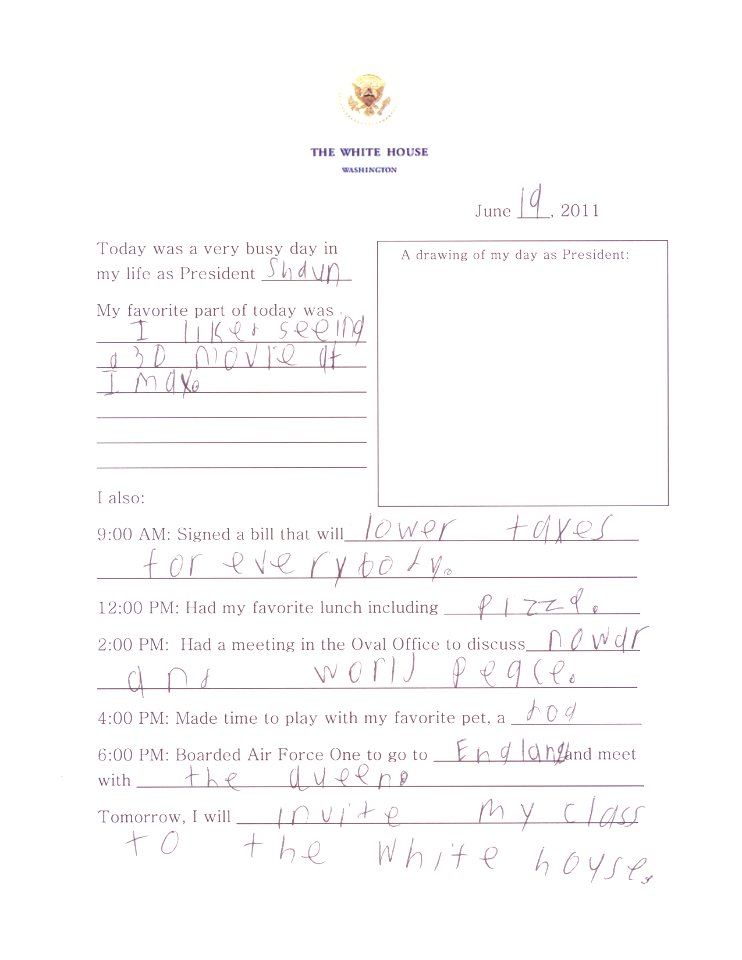 THE WHITE HOUSE
WASHINGTON
June 19, 2011
Today was a very busy day in
my life as President Shaun
My favorite part of today was
I liked seeing
a 3D movie at
I max.
A drawing of my day as President:
I also:
9:00 AM: Signed a bill that will lower taxes
for everybody.
12:00 PM: Had my favorite lunch including pizza.
2:00 PM: Had a meeting in the Oval Office to discuss nowar
and world peace.
4:00 PM: Made time to play with my favorite pet, a dog
6:00 PM: Boarded Air Force One to go to England and meet
with the queen.
Tomorrow, I will invite my class
to the White house.